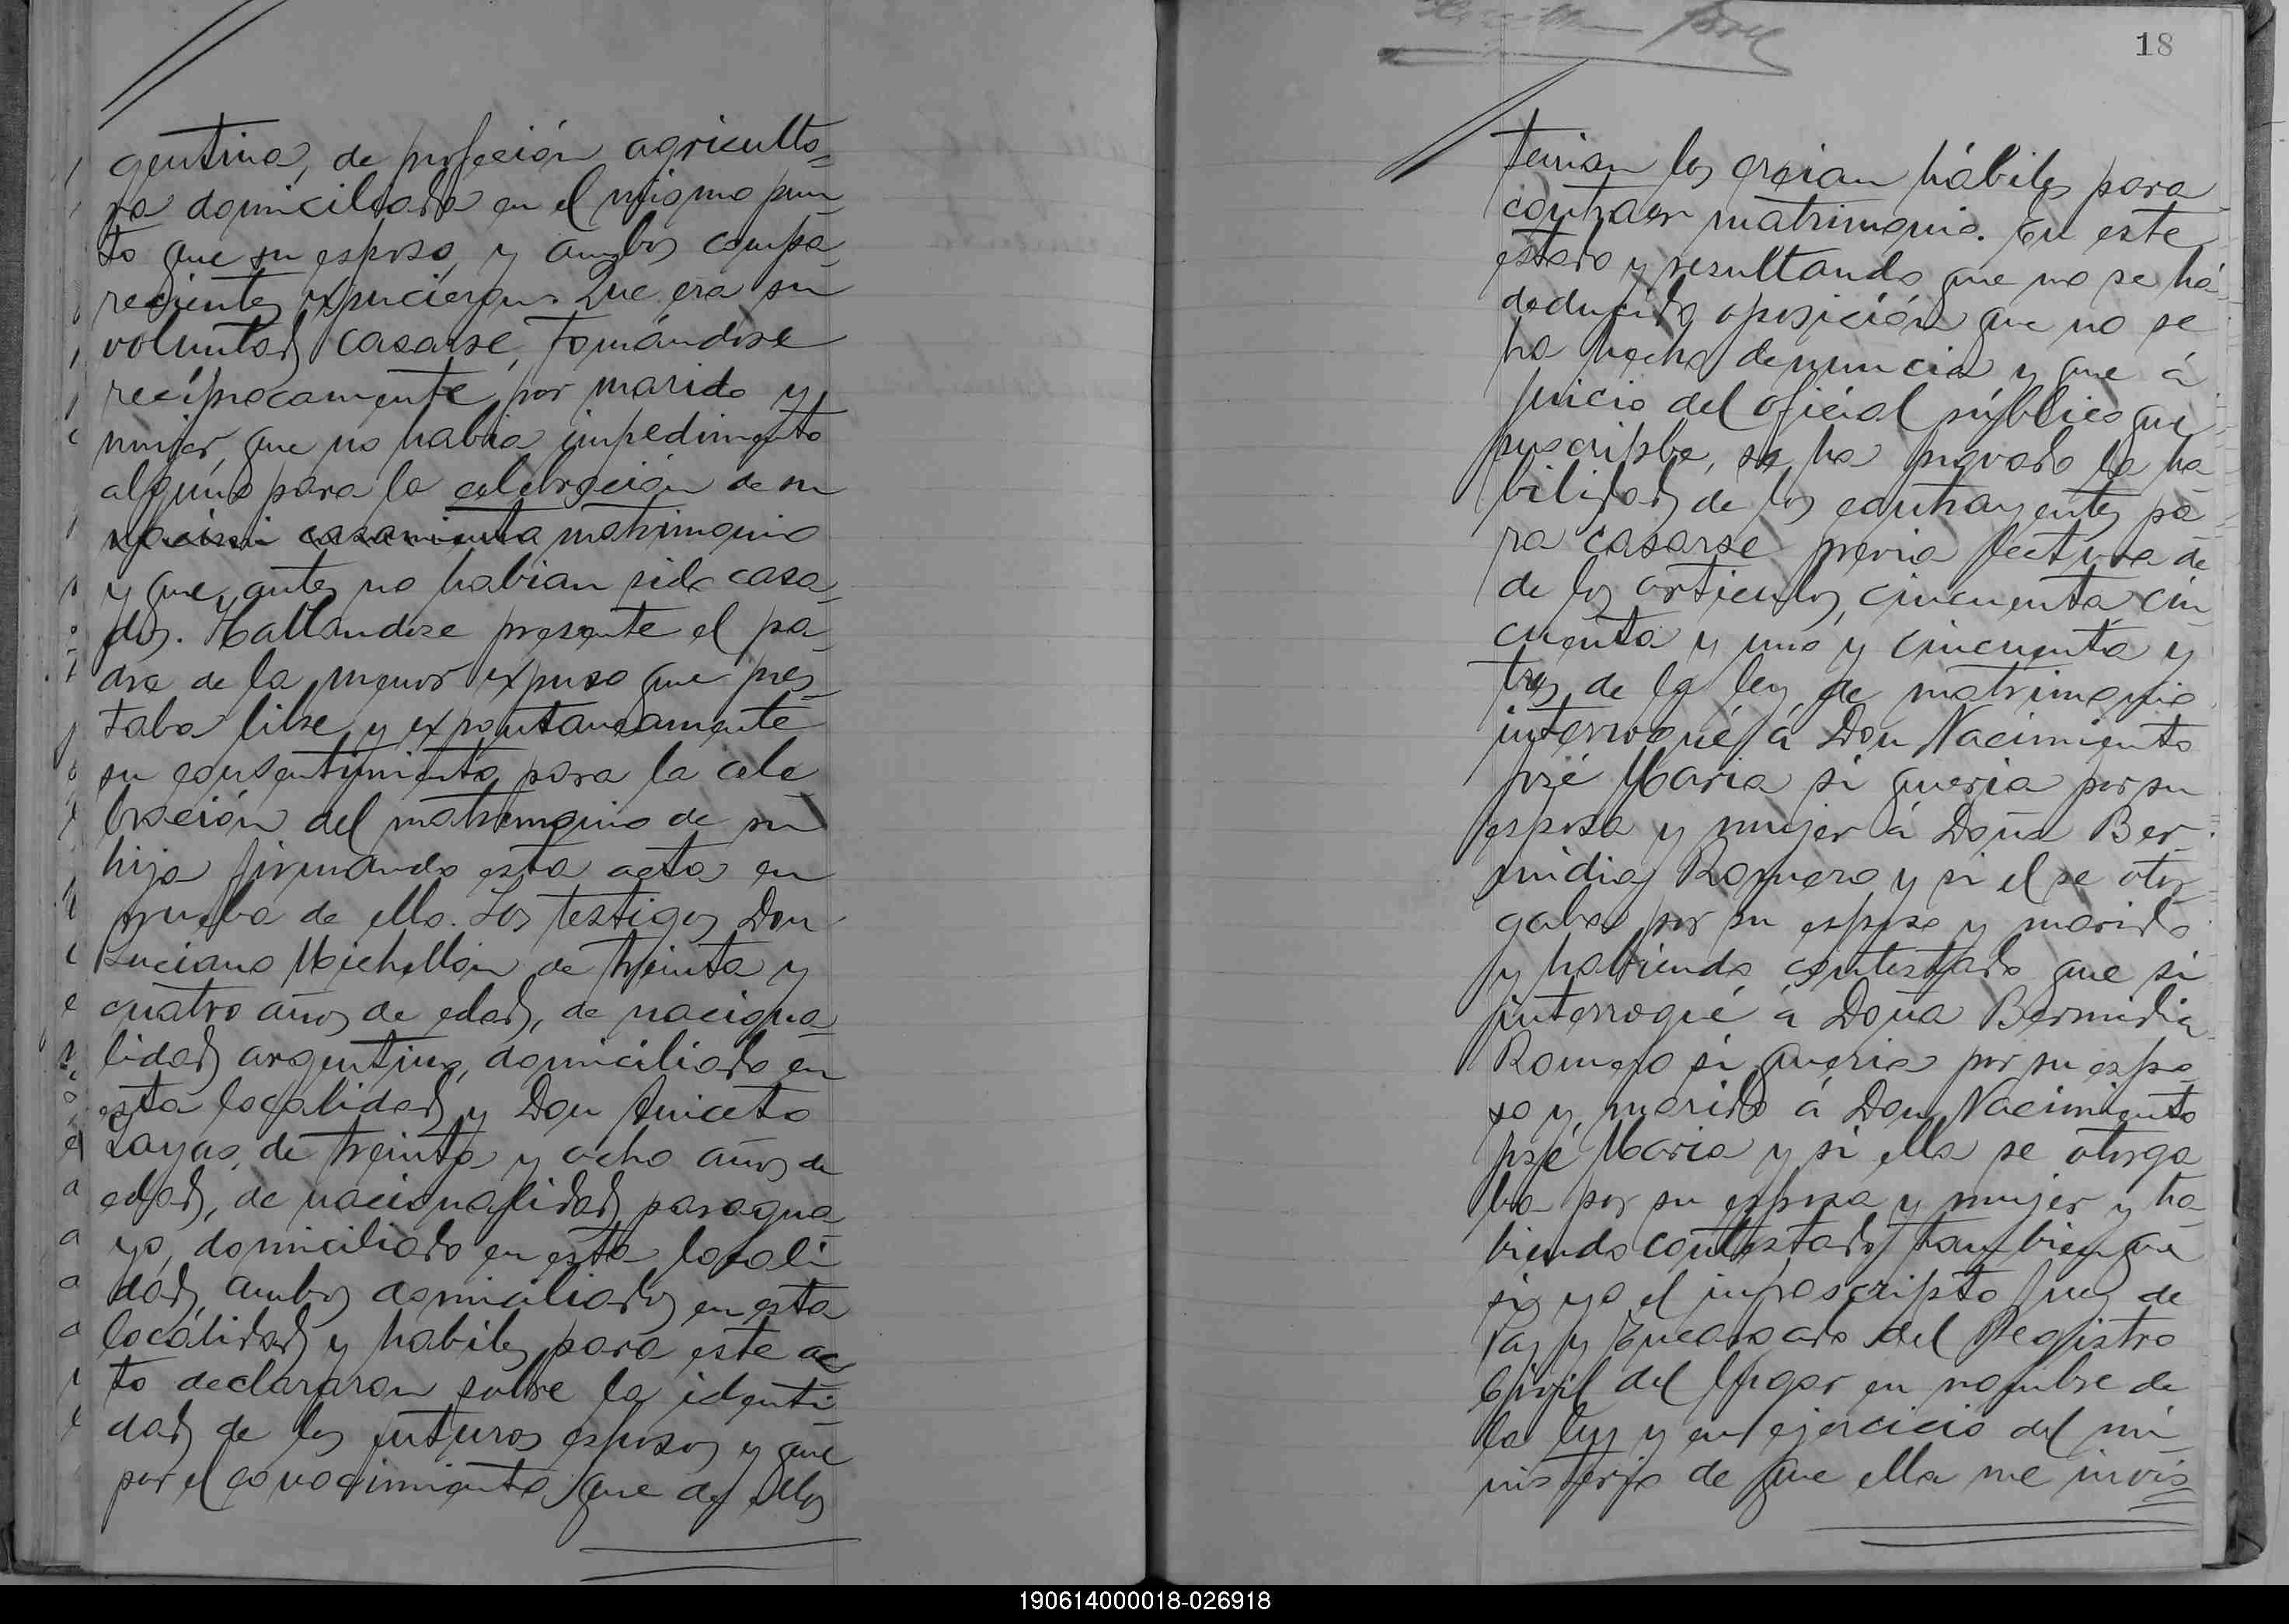 gentina, de profeción agriculto-
ra domiciliada en el mismo pun-
to que su esposo, y ambos compa-
recientes expucieron: Que era su
voluntad casarse, tomándose
recíprocamente por marido y
mujer, que no habia impedimento
alguno para la celebración de su
casamiento matrimonio
y que antes no habian sido casa-
dos. Hallandose presente el pa-
dre de la menor expuso que pres-
taba libre y expontaneamente
su consentimiento para la cele-
bración del matrimonio de su
hija firmando esta acta en
prueba de ello. Los testigos Don
Luciano Michellón de treinta y
cuatro años de edad, de naciona-
lidad argentino, domiciliado en
esta localidad y Don Aniceto
Zayas, de treinta y ocho años de
edad, de nacionalidad paragua-
yo, domiciliado en esta locali-
dad, ambos domiciliados en esta
localidad y habiles para este ac-
to declararon sobre la identi-
dad de los futuros esposos y que
por el conocimiento que de ellos
18
tenian los creian hábiles para
contraer matrimonio. En este
estado y resultando que no se há
deducido oposición que no se
ha hecho denuncia y que á
juicio del oficial público que
suscripbe, se ha provado la ha-
bilidad de los contrayentes pa-
ra casarse previa lectura de
de los articulos, cincuenta, cin-
cuenta y uno y cincuenta y
tres de la ley de matrimonio
interrogué á Don Nacimiento
José Maria si queria por su
esposa y mujer á Doña Ber-
midia Romero y si el se otor-
gaba por su esposo y marido
y habiendo contestado que si
interrogué á Doña Bermidia
Romero si queria por su espo-
so y marido á Don Nacimiento
José Maria y si ella se otorga-
ba por su esposa y mujer y ha-
biendo contestado tambien que
si, yo el infrascripto Juez de
Paz y Encargado del Registro
Civil del lugar en nombre de
la ley y en ejercicio del mi-
nisterio de que ella me invis-
190614000018-026918